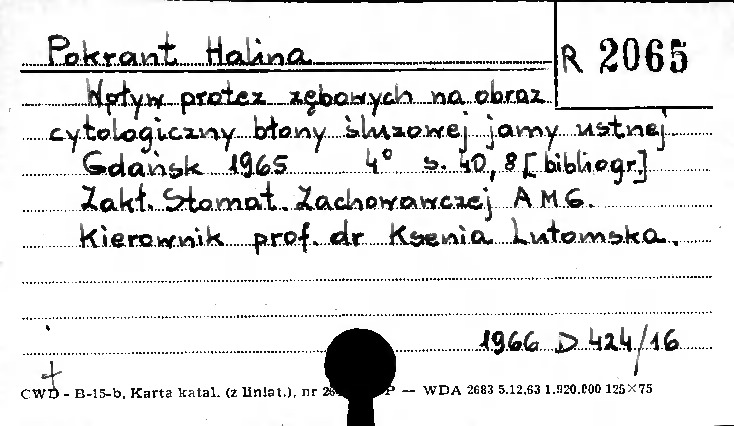 Pokrant Halina
R 2065
Wpływ protez zębowych na obraz
cytologiczny błony śluzowej jamy ustnej
Gdańsk 1965 4° s. 40, 8 [bibliogr.]
Zakł. Stomat. Zachowawczej AMG.
Kierownik prof. dr Ksenia Lutomska.
1966 D 424/16
CWD - B-15-b, Karta katal. (z liniat.), nr — WDA 2683 5.12.63 1.920.000 125×75